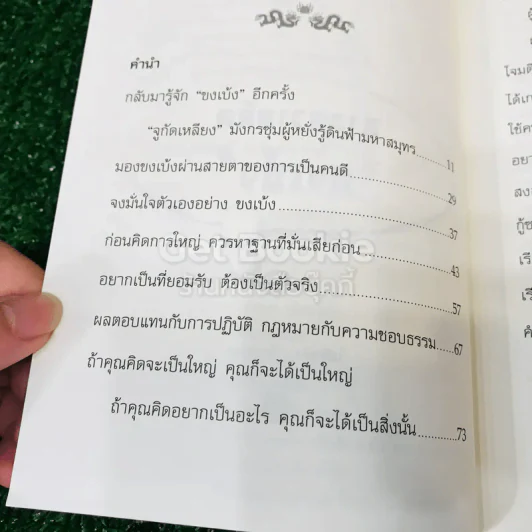 คำนำ
กลับมารู้จัก “ขงเบ้ง” อีกครั้ง
“จูกัดเหลียง” มังกรซุ่มผู้หยั่งรู้ดินฟ้ามหาสมุทร.......11
มองขงเบ้งผ่านสายตาของการเป็นคนดี....................29
จงมั่นใจตัวเองอย่าง ขงเบ้ง....................................37
ก่อนคิดการใหญ่ ควรหาฐานที่มั่นเสียก่อน..................43
อยากเป็นที่ยอมรับ ต้องเป็นตัวจริง............................57
ผลตอบแทนกับการปฏิบัติ กฎหมายกับความชอบธรรม.....67
ถ้าคุณคิดจะเป็นใหญ่ คุณก็จะได้เป็นใหญ่
ถ้าคุณคิดอยากเป็นอะไร คุณก็จะได้เป็นสิ่งนั้น............73
Get Bookie
ร้านหนังสือบุ๊กกี้
โจมตี
ได้เก
ใช้ค
อยา
สง
กู้ช
เรี
เรี